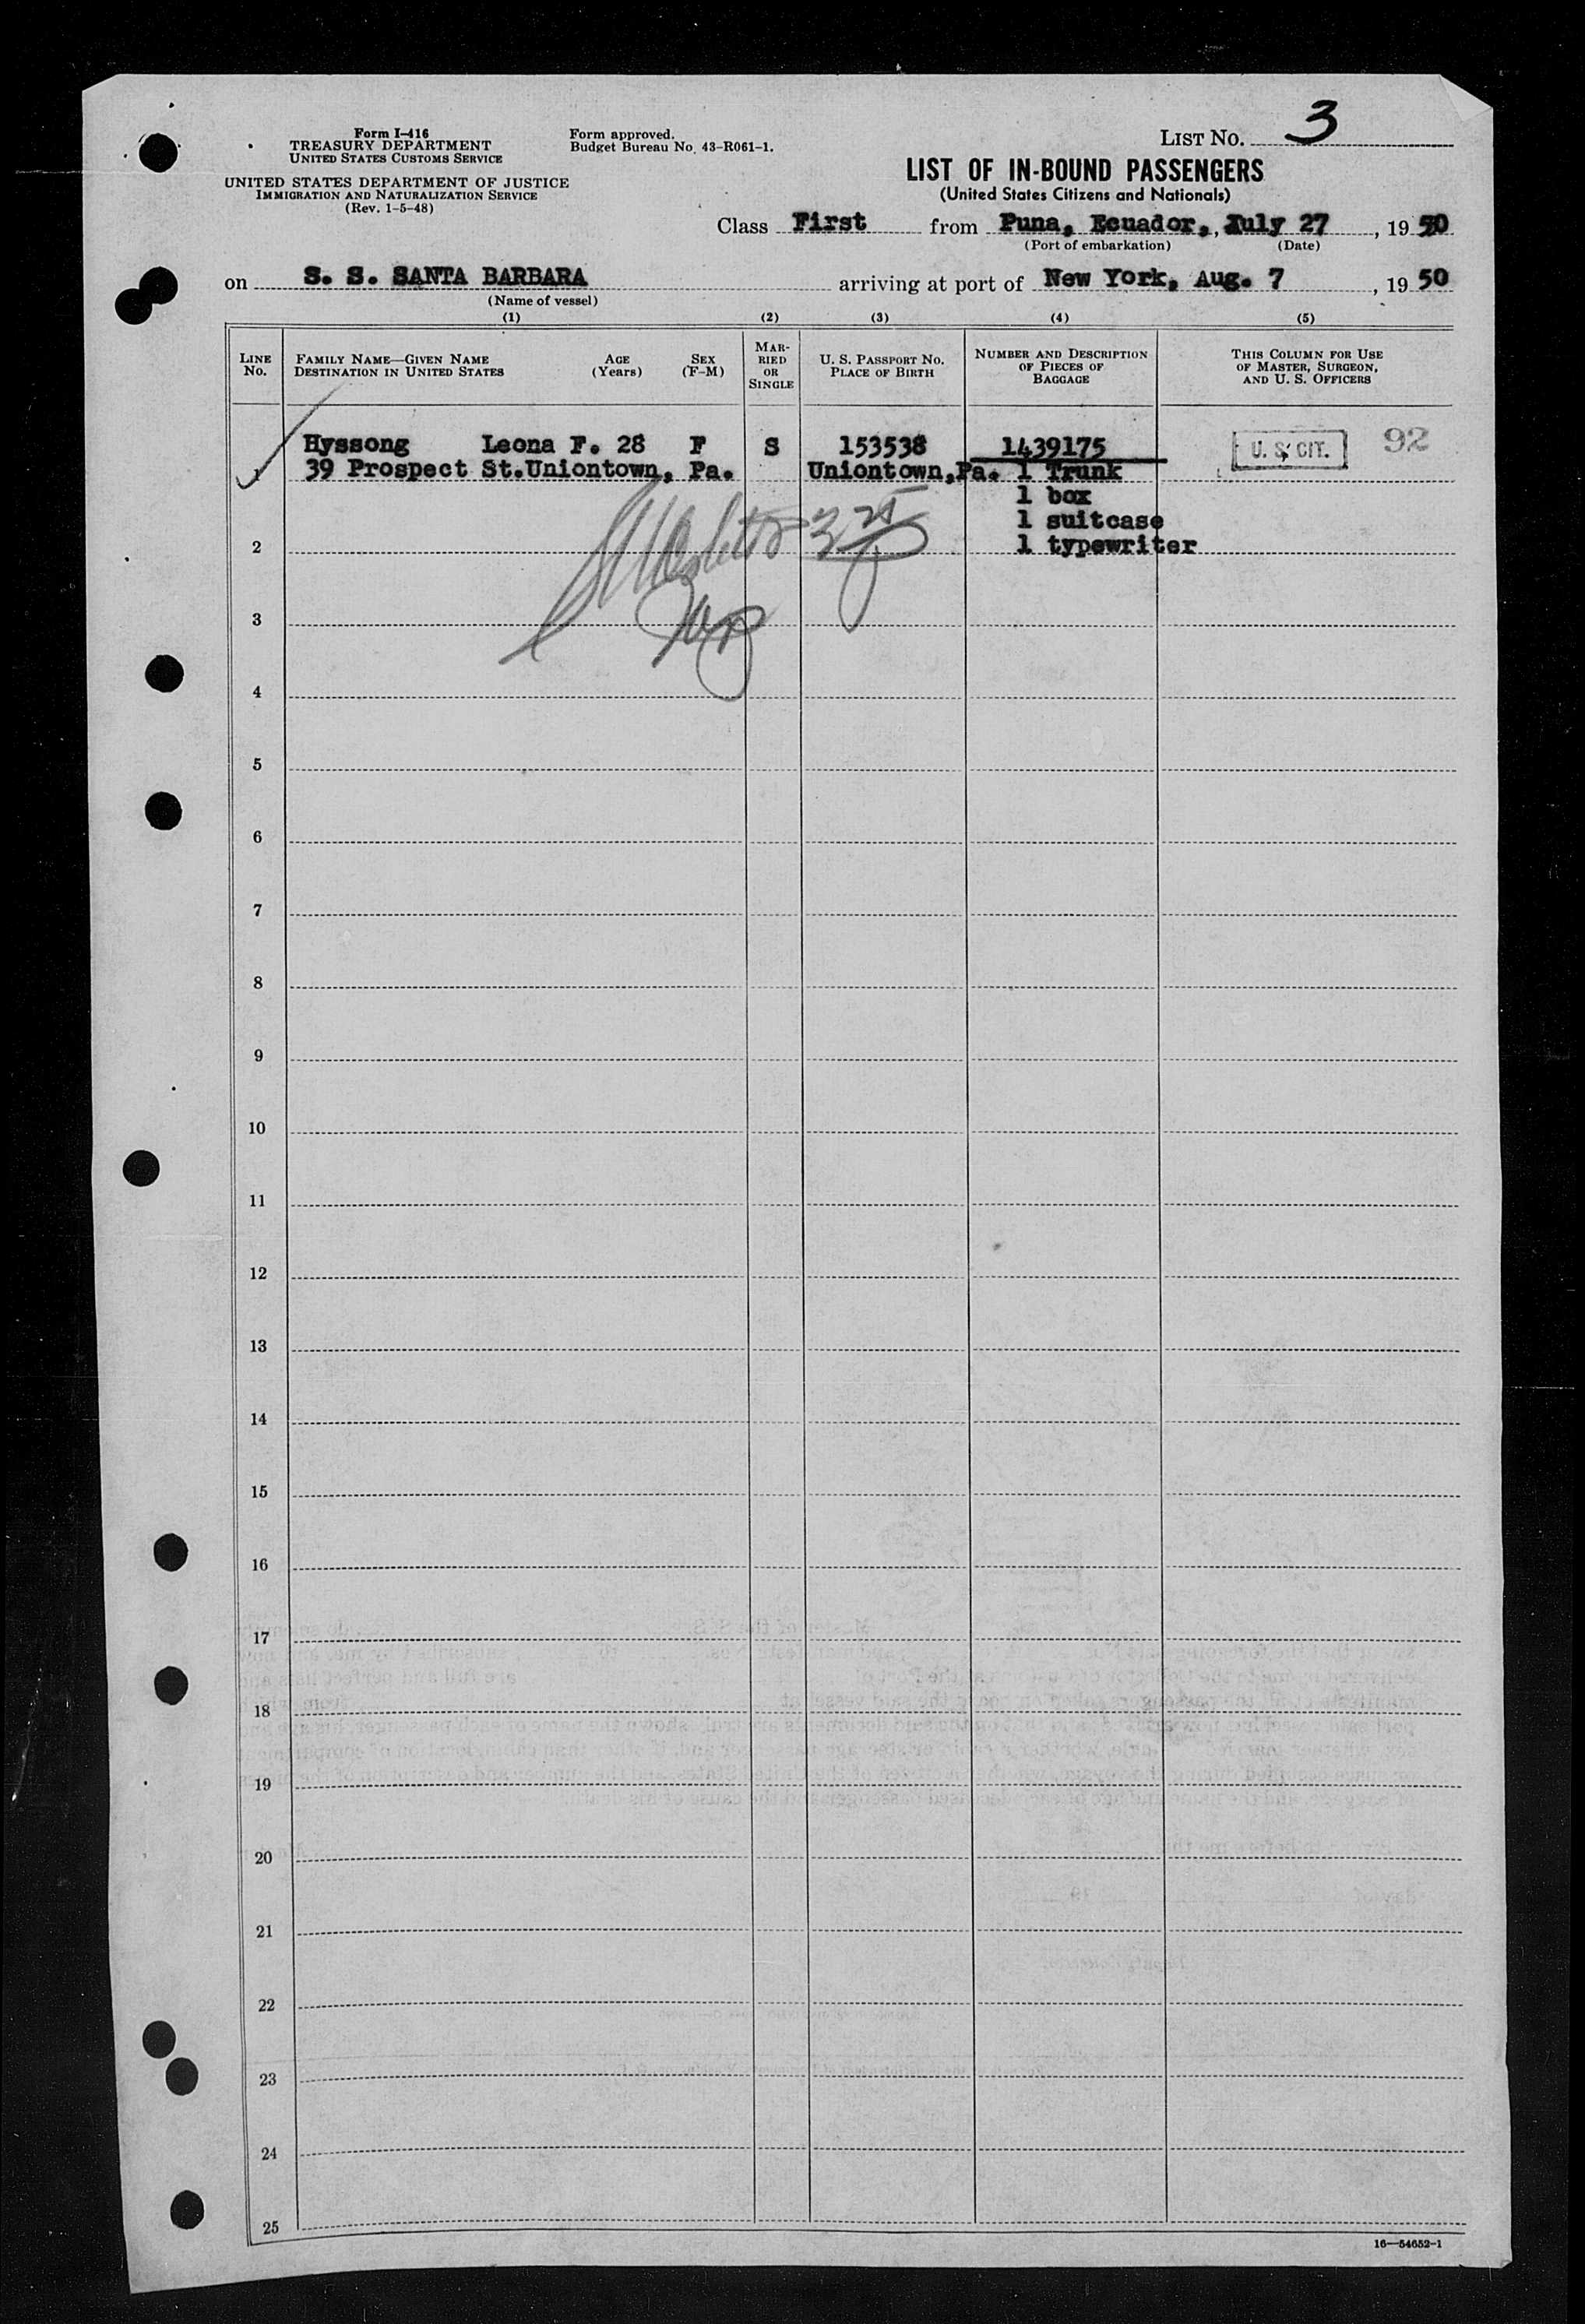 Form I-416
TREASURY DEPARTMENT
UNITED STATES CUSTOMS SERVICE
UNITED STATES DEPARTMENT OF JUSTICE
IMMIGRATION AND NATURALIZATION SERVICE
(Rev. 1-5-48)
Form approved.
Budget Bureau No. 43-R061-1.
LIST NO. 3
LIST OF IN-BOUND PASSENGERS
(United States Citizens and Nationals)
Class First from Puna, Ecuador, July 27, 1950
(Port of embarkation) (Date)
on S. S. SANTA BARBARA arriving at port of New York, Aug. 7, 1950
(Name of vessel)
(1) (2) (3) (4) (5)
LINE NO.
FAMILY NAME—GIVEN NAME
DESTINATION IN UNITED STATES
AGE (Years)
SEX (F-M)
MARRIED OR SINGLE
U. S. PASSPORT NO.
PLACE OF BIRTH
NUMBER AND DESCRIPTION OF PIECES OF BAGGAGE
THIS COLUMN FOR USE OF MASTER, SURGEON, AND U. S. OFFICERS
Hyssong Leona F. 28 F S 153538 1439175 U. S. CIT. 92
1 39 Prospect St.Uniontown, Pa. Uniontown,Pa. 1 Trunk
1 box
1 suitcase
2 1 typewriter
3
4
5
6
7
8
9
10
11
12
13
14
15
16
17
18
19
20
21
22
23
24
25
16—54652-1